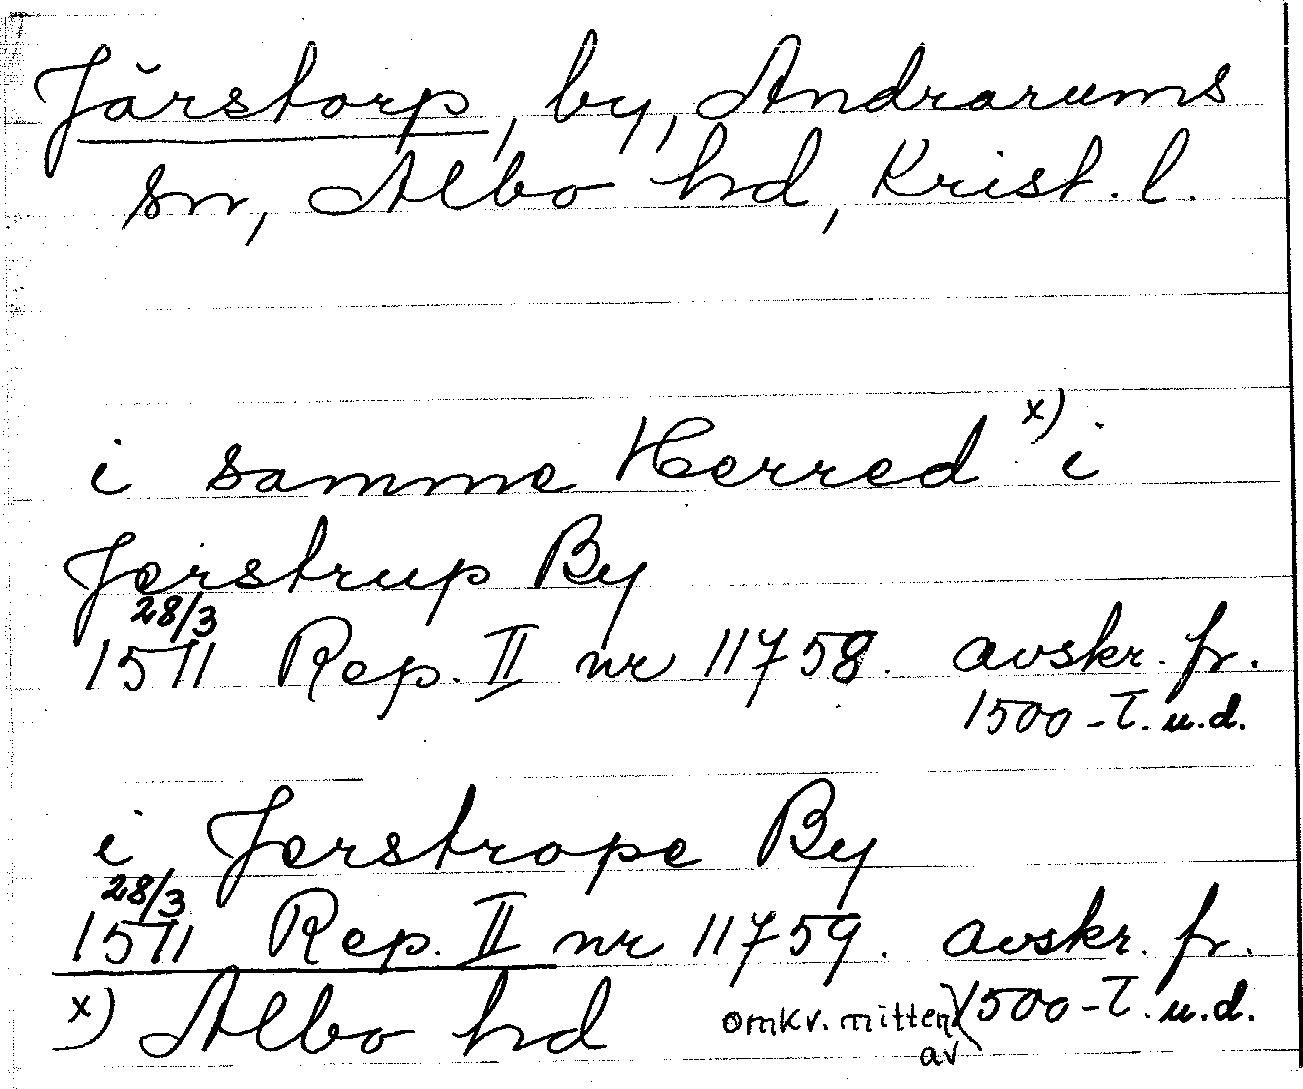 Järstorp, by, Andrarums
sn, Albo hd, Krist. l.
i samme Herred x) i
Jerstrup By
28/3
1511 Rep. II nr 11758. avskr. fr.
1500-T. u.d.
i Jerstrope By
28/3
1511 Rep. II nr 11759. avskr. fr.
x) Albo hd omkv. mitten av 1500-T. u.d.